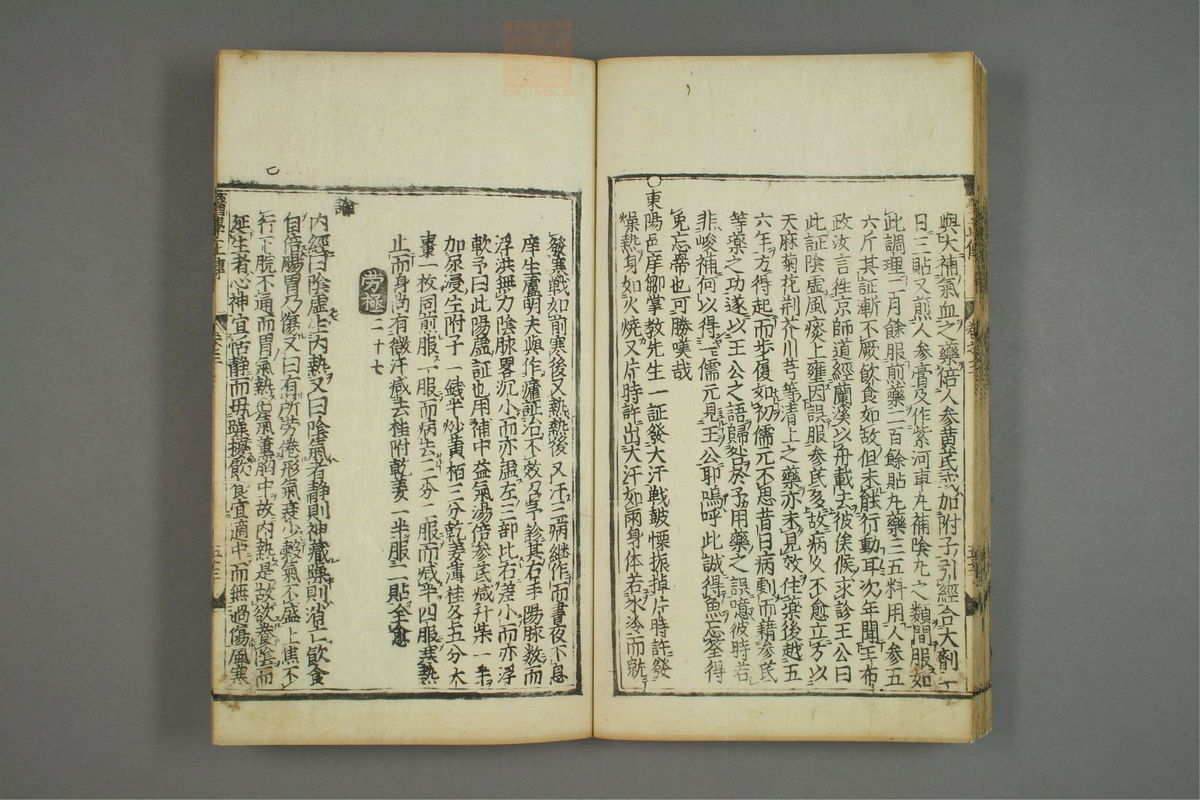 與大補氣血之藥倍人參黃芪或加附子引經合大劑一
日三貼又煎人參膏及作紫河車丸補陰丸之類間服如
此調理二月餘服煎藥二百餘貼丸藥三五料用人參五
六斤其証漸不厥飲食如故但未能行動耳次年聞王布
政汝言徃京師道經蘭溪以舟載去彼俟候求診王公曰
此証陰虛風痰上壅因誤服參芪多故病久不愈立方以
天麻菊花荆芥川芎等清上之藥亦未見效住藥後越五
六年方得起而步履如初儒元不思昔日病劇而藉參芪
等藥之功遂以王公之語歸咎於予用藥之誤噫彼時若
非峻補何以得一儒元見王公耶嗚呼此誠得魚忘筌得
兔忘蹄也可勝嘆哉
○東陽邑庠鄒掌教先生一証發大汗戰皷慄振掉片時許發
燥熱身如火燒又片時許出大汗如雨身体若氷冷而就
發寒戰如前寒後又熱熱後又汗三病継作而晝夜不息
庠生盧明夫與作瘧証治不效召予診其右手陽脉数而
浮洪無力陰脉畧沉小而亦虛左三部比右差小而亦浮
軟予曰此陽虛証也用補中益氣湯倍參芪减升柴一半
加尿浸生附子一錢半炒黃栢三分乾薑薄桂各五分大
棗一枚同煎服一服而病去二分二服而减半四服寒熱
止而身尚有微汗减去桂附乾姜一半服二貼全愈
劳極 二十七
論
內經曰陰虛生內熱又曰陰氣者靜則神藏躁則消亡飲食
自倍腸胃乃傷又曰有所劳倦形氣衰少穀氣不盛上焦不
行下脘不通而胃氣熱熱氣薰胸中故內熱是故欲養陰而
延生者心神宜恬靜而毋躁擾飲食宜適中而無過傷風寒